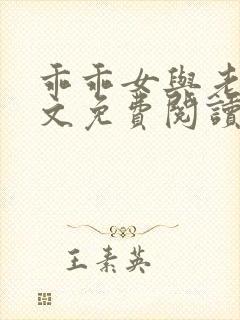 乖乖女與老
文免費閱讀
王素英